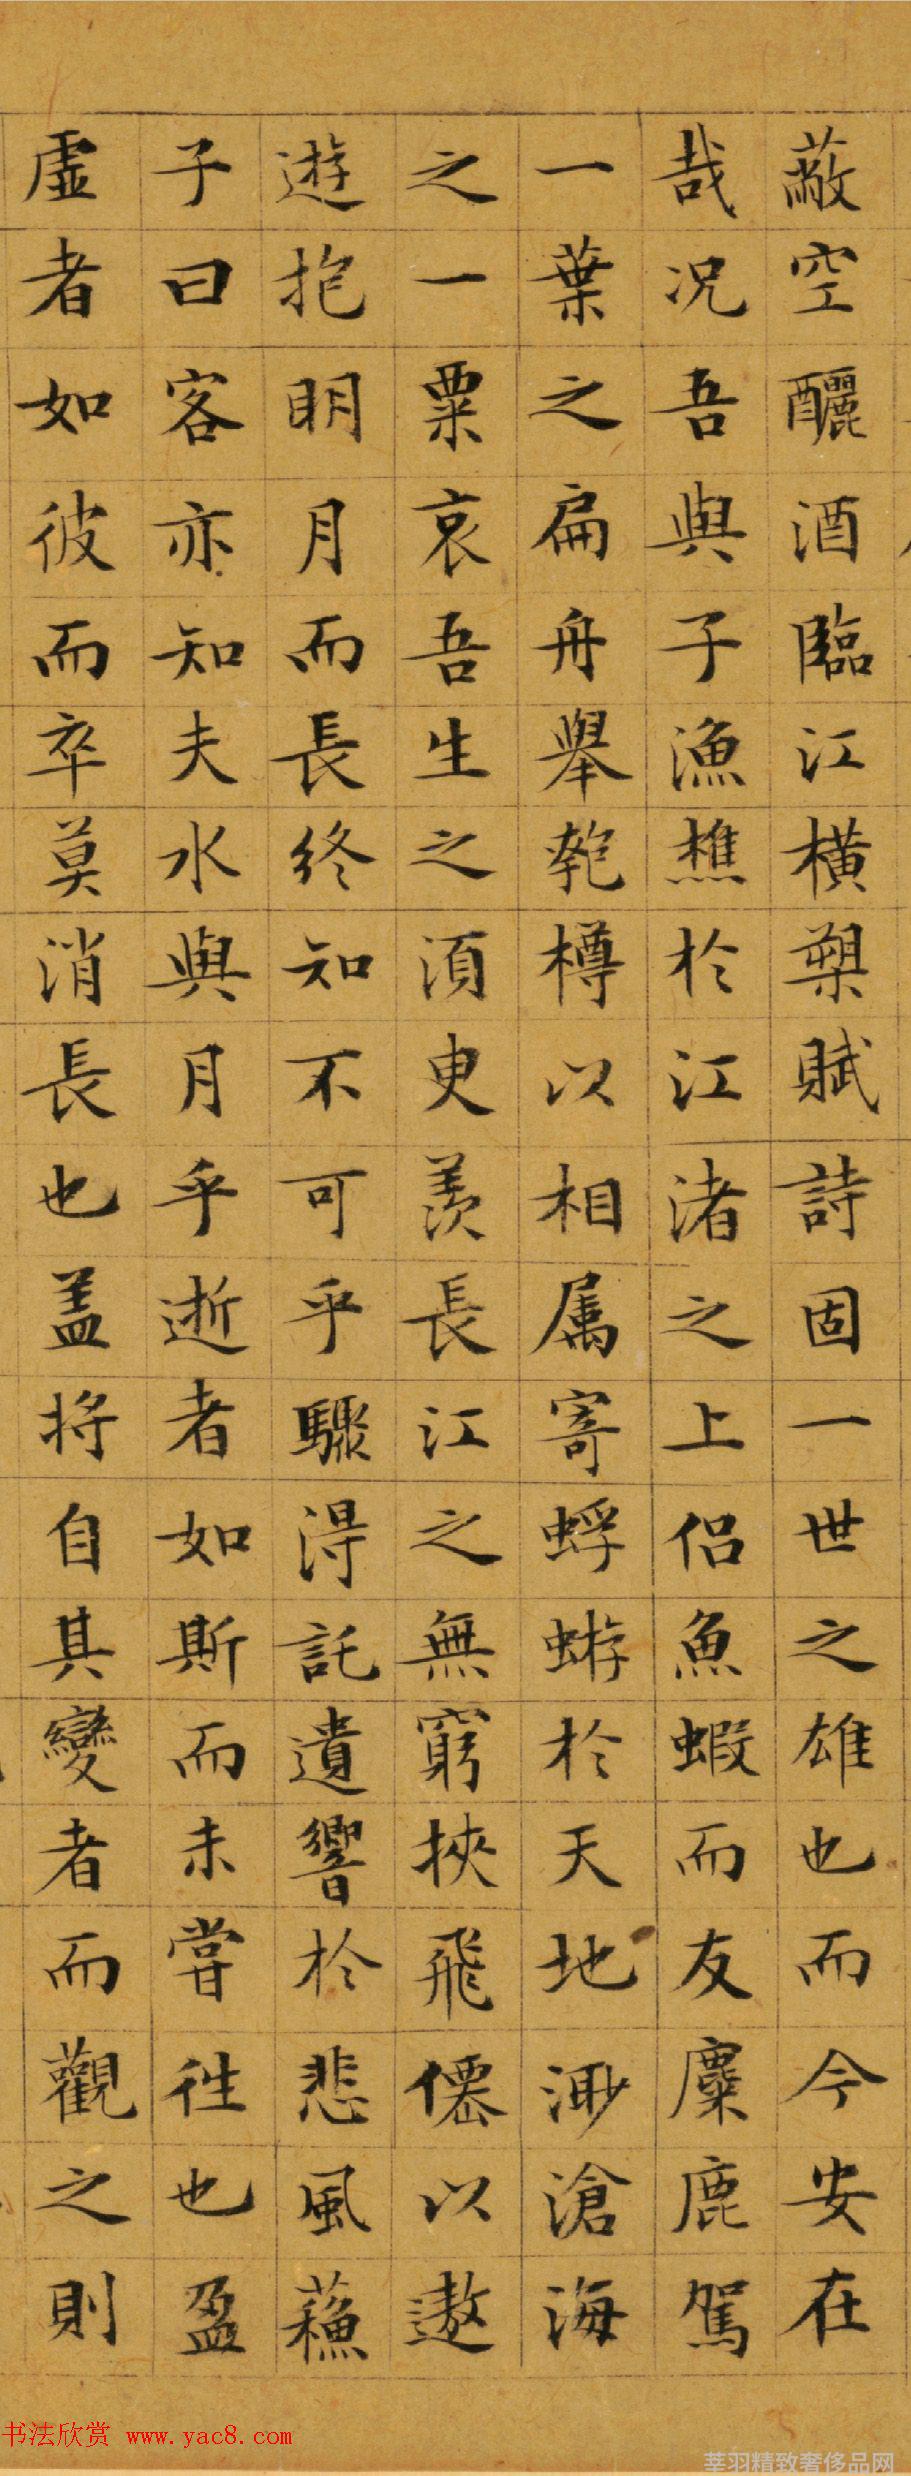 蔽空釃酒臨江橫槊賦詩固一世之雄也而今安在
哉况吾與子漁樵於江渚之上侶魚蝦而友麋鹿駕
一葉之扁舟舉匏樽以相属寄蜉蝣於天地渺滄海
之一粟哀吾生之須臾羨長江之無窮挾飛僊以遨
遊抱明月而長終知不可乎驟得託遺響於悲風蘓
子曰客亦知夫水與月乎逝者如斯而未嘗往也盈
虛者如彼而卒莫消長也盖将自其變者而觀之則
书法欣赏 www.yac8.com
莘羽精致奢侈品网